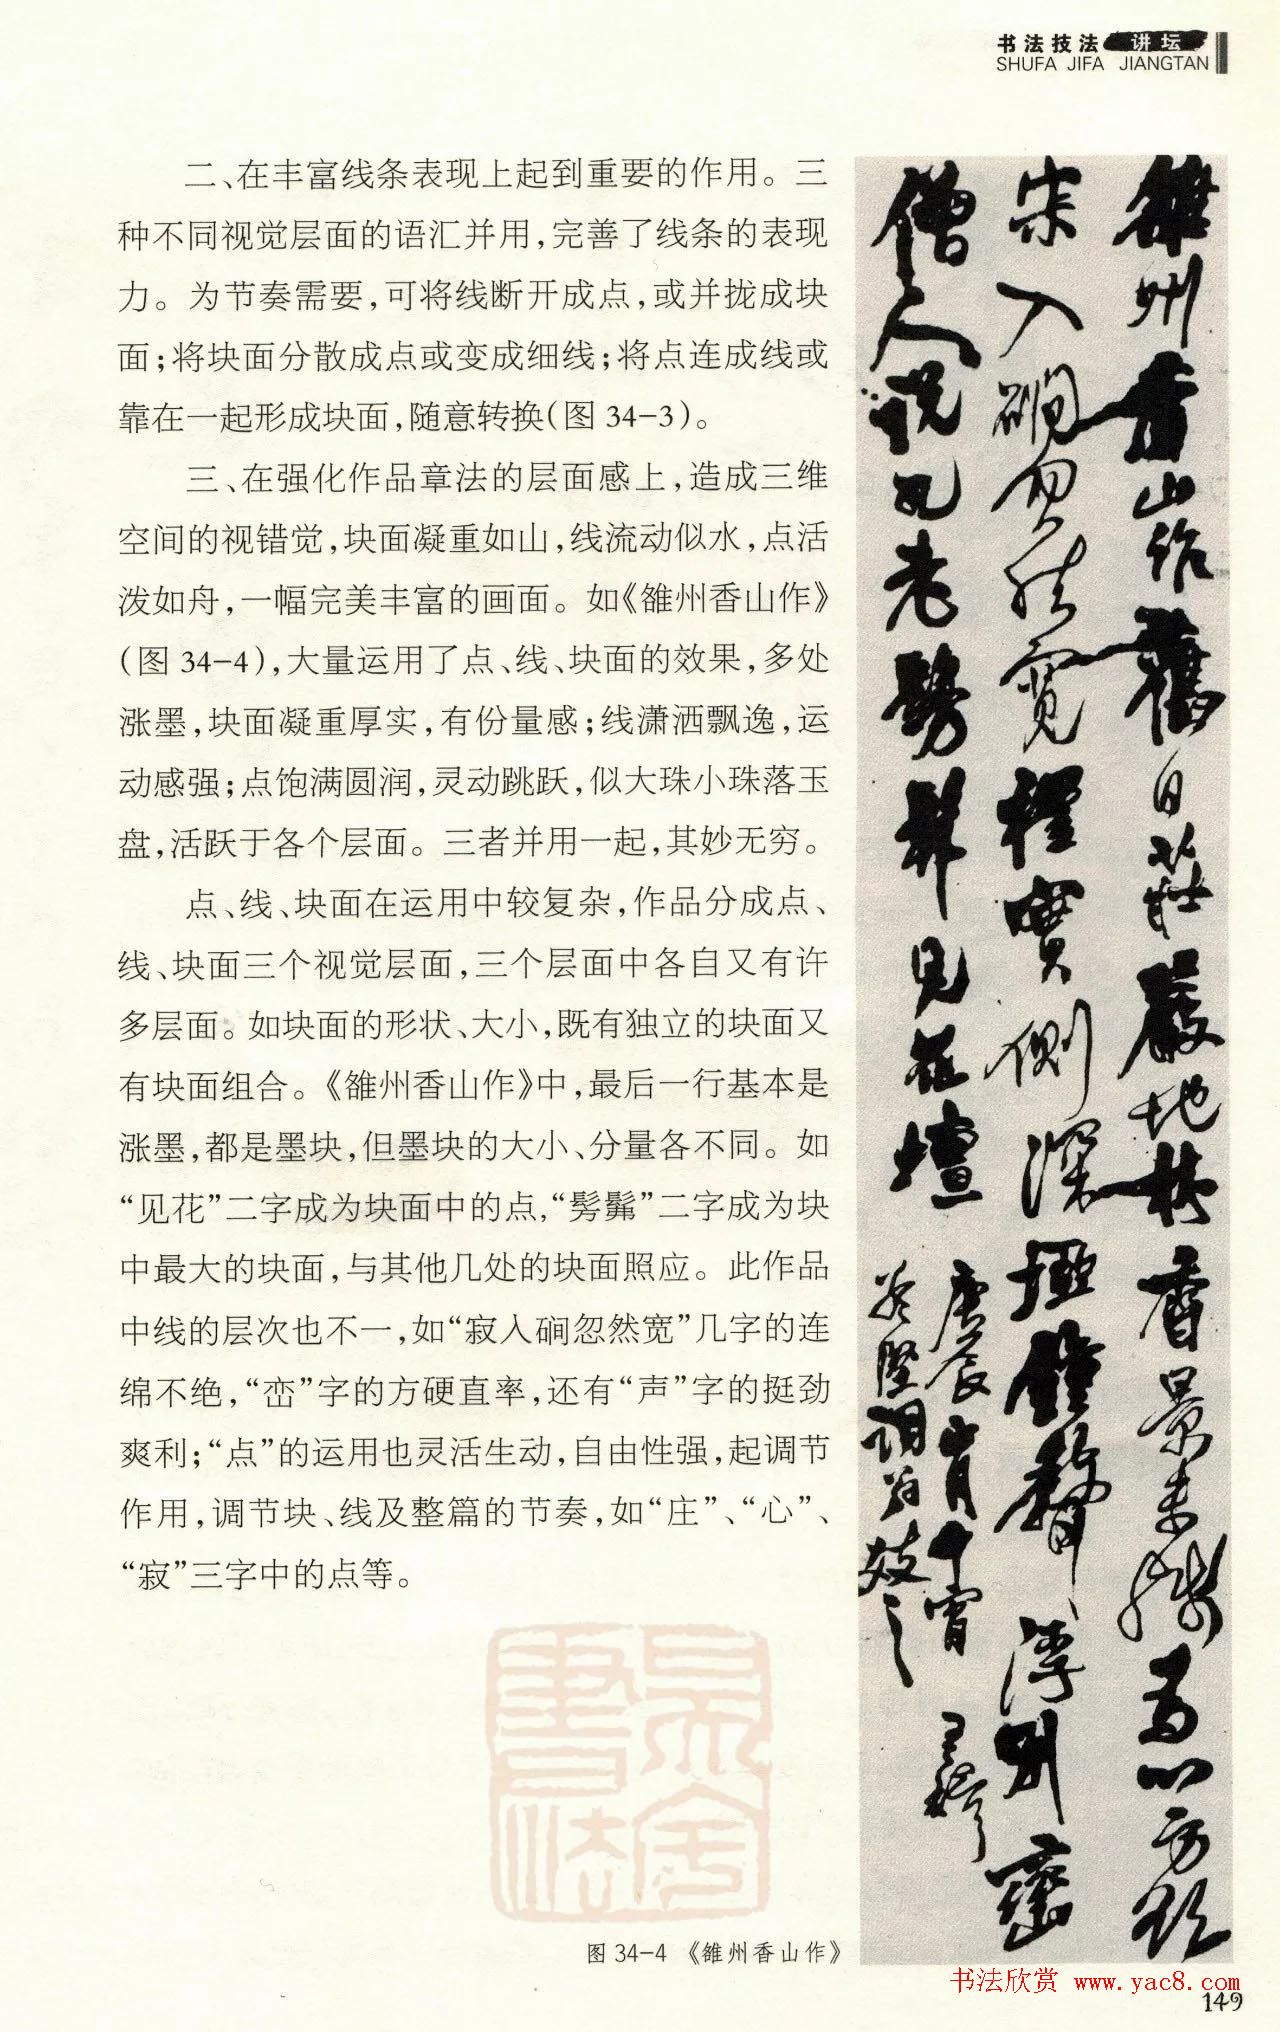 书法技法 讲坛
SHUFA JIFA JIANGTAN
二、在丰富线条表现上起到重要的作用。三
种不同视觉层面的语汇并用，完善了线条的表现
力。为节奏需要，可将线断开成点，或并拢成块
面；将块面分散成点或变成细线；将点连成线或
靠在一起形成块面，随意转换（图 34-3）。
三、在强化作品章法的层面感上，造成三维
空间的视错觉，块面凝重如山，线流动似水，点活
泼如舟，一幅完美丰富的画面。如《雒州香山作》
（图 34-4），大量运用了点、线、块面的效果，多处
涨墨，块面凝重厚实，有份量感；线潇洒飘逸，运
动感强；点饱满圆润，灵动跳跃，似大珠小珠落玉
盘，活跃于各个层面。三者并用一起，其妙无穷。
点、线、块面在运用中较复杂，作品分成点、
线、块面三个视觉层面，三个层面中各自又有许
多层面。如块面的形状、大小，既有独立的块面又
有块面组合。《雒州香山作》中，最后一行基本是
涨墨，都是墨块，但墨块的大小、分量各不同。如
“见花”二字成为块面中的点，“髣髴”二字成为块
中最大的块面，与其他几处的块面照应。此作品
中线的层次也不一，如“寂入磵忽然宽”几字的连
绵不绝，“峦”字的方硬直率，还有“声”字的挺劲
爽利；“点”的运用也灵活生动，自由性强，起调节
作用，调节块、线及整篇的节奏，如“庄”、“心”、
“寂”三字中的点等。
雒州香山作旧日庄严地林香景未残为心方欲
寂入磵忽然宽程实侧深埋钟声浮别峦
僧人说凡老髣髴见花坛
图 34-4 《雒州香山作》
书法欣赏 www.yac8.com
149